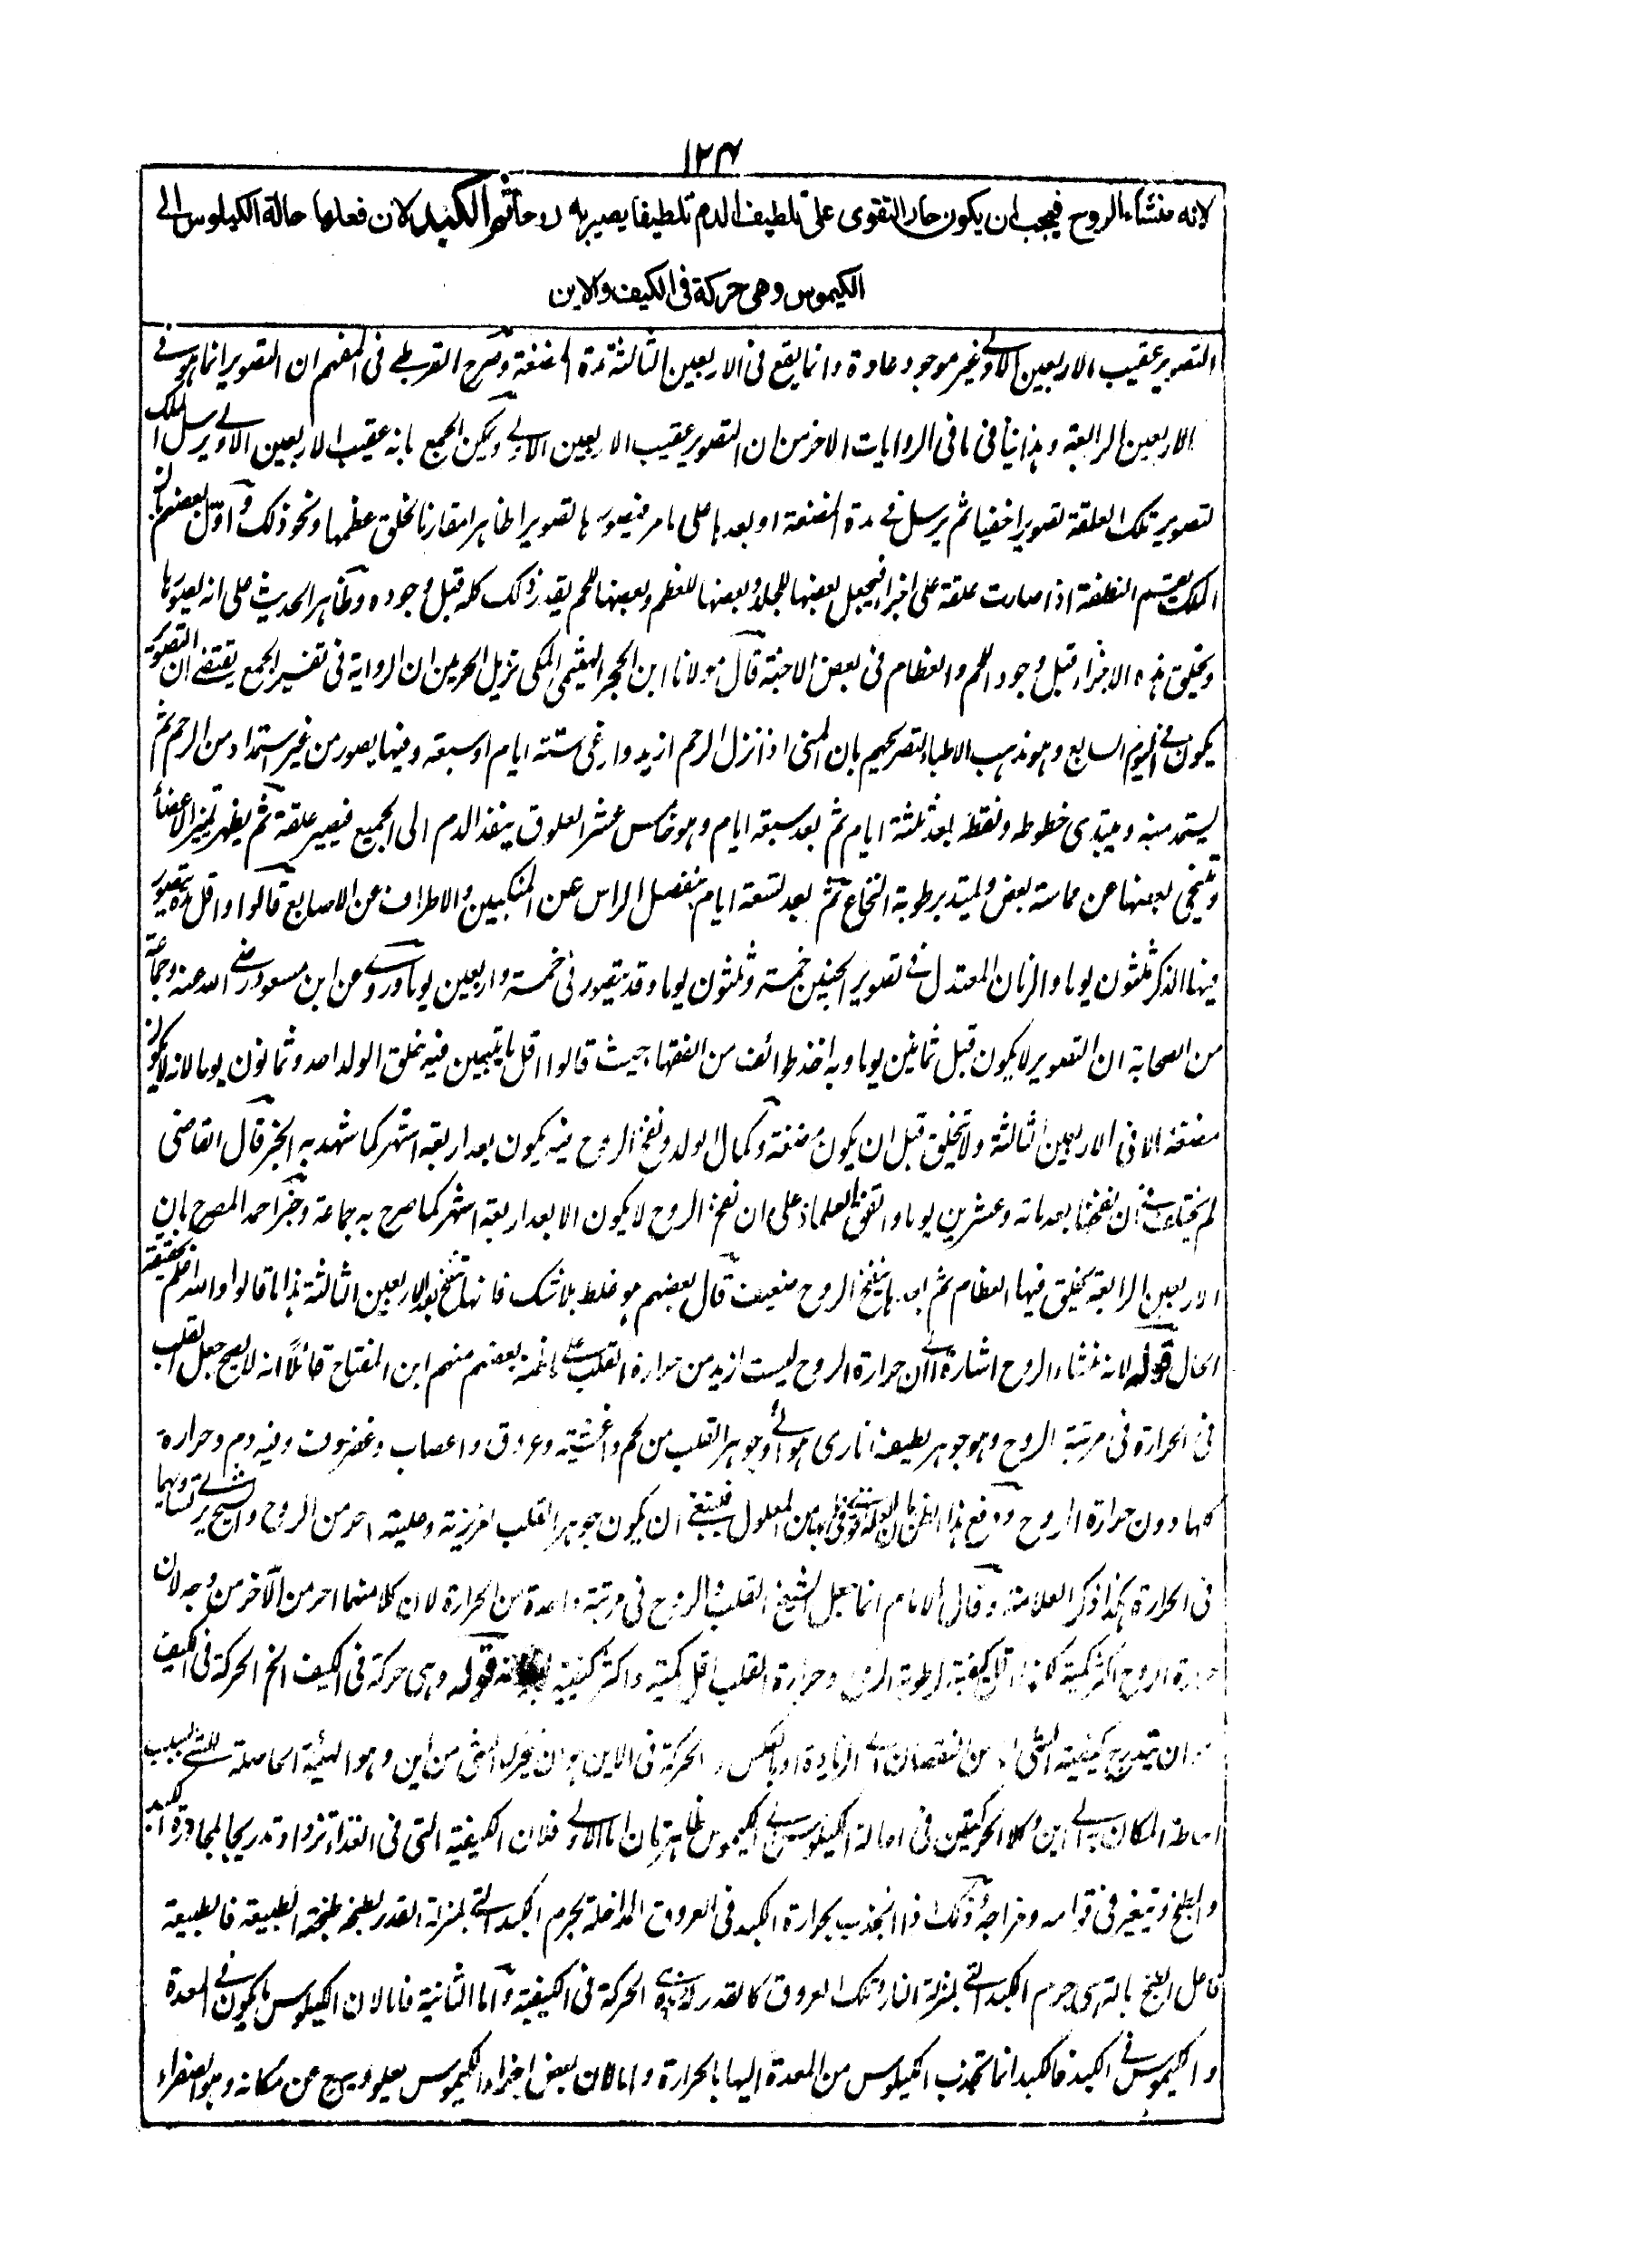 ١٢٤
لانه منشأ الروح فيجب ان يكون حارا لتقوى على تلطيف الدم تلطيفا يصير به روحا ثم الكبد لان فعلها احالة الكيلوس الى
الكيموس وهى حركة فى الكيف والاين
التصوير عقيب الاربعين الاولى غير موجود عادة وانما يقع فى الاربعين الثالثة مدة المضغة وصرح القرطبي فى المفهم ان التصوير انما هو في
الاربعين الرابعة وهذا ينافى ما فى الروايات الاخر من ان التصوير عقيب الاربعين الاولى ويمكن الجمع بانه عقيب الاربعين الاولى يرسل الملك
لتصوير تلك العلقة تصويرا خفيا ثم يرسل في مدة المضغة او بعدها على ما مر فيصورها تصويرا ظاهرا مقارنا لخلق عظمها ونحو ذلك واول بعضهم بان
الملك يقسم النطفة اذا صارت علقة على اجزاء فيجعل بعضها للجلد وبعضها للعظم وبعضها للحم يقدر ذلك كله قبل وجوده وظاهر الحديث على انه يصورها
ويخلق هذه الاجزاء قبل وجود اللحم والعظام فى بعض الاجنة قال مولانا ابن الحجر الهيثمى المكى نزيل الحرمين ان الرواية فى تفسير الجمع يقتضے ان التصوير
يكون في اليوم السابع وهو مذهب الاطباء لتصريحهم بان المنى اذا نزل الرحم ازبد وارغى ستة ايام او سبعة وفيها يصور من غير استمداد من الرحم ثم
يستمد منه ويبتدى خطوطه ونقطه بعد ثلثة ايام ثم بعد سبعة ايام وهو خامس عشر العلوق ينفذ الدم الى الجميع فيصير علقة ثم يظهر تميز الاعضاء
وتنحى بعضها عن مماسة بعض وتمتد برطوبة النخاع ثم بعد تسعة ايام ينفصل الراس عن المنكبين والاطراف عن الاصابع قالوا واقل مدة يتصور
فيها الذكر ثلثون يوما والزمان المعتدل في تصوير الجنين خمسة وثلثون يوما وقد يتصور فى خمسة واربعين يوما وروى عن ابن مسعود رضے الله عنه وجماعة
من الصحابة ان التصوير لا يكون قبل ثمانين يوما وبه اخذ طوائف من الفقها حيث قالوا اقل ما يتبين فيه خلق الولد احد وثمانون يوما لانه لا يكون
مضغة الا فى الاربعين الثالثة ولا تخليق قبل ان يكون مضغة وكمال الولد ونفخ الروح فيه يكون بعد اربعة اشهر كما شهد به الخبر قال القاضى
لم يختلف في ان نفخها بعد مائة وعشرين يوما واتفق العلماء على ان نفخ الروح لا يكون الا بعد اربعة اشهر كما صرح به جماعة وخبر احمد المصرح بان
الاربعين الرابعة يخلق فيها العظام ثم بعدها ينفخ الروح ضعيف قال بعضهم هو غلط بلا شك فانها تنفخ بعد الاربعين الثالثة هذا ما قالوا والله اعلم بحقيقة
الحال قوله لانه منشاء الروح اشارة الى ان حرارة الروح ليست ازيد من حرارة القلب على ما ظنه بعضهم منهم ابن المفتاح قائلاً انه لا يصح جعل القلب
فى الحرارة فى مرتبة الروح وهو جوهر لطيف نارى هوائى وجوهر القلب من لحم واغشية وعروق واعصاب وغضروف وفيه دم وحرارة
كلها دون حرارة الروح ودفع هذا الظن بان العلة فوق المعلول فينبغے ان يكون جوهر القلب لغريزته وصلبيته احر من الروح والمسيحي يرى تساويهما
فى الحرارة كذا ذكر العلامة وقال الامام انما جعل الشيخ القلب والروح فى مرتبة واحدة من الحرارة لان كلا منهما احر من الآخر من وجه لان
حرارة الروح اكثر كمية لكنها اقل كيفية لرطوبة الروح وحرارة القلب اقل كمية واكثر كيفية قوله وهى حركة فى الكيف الخ الحركة فى الكيف
هو ان يتدرج كيفية الشى من النقصان الى الزيادة او بالعكس والحركة فى الاين هو ان يتحرك الشى من اين وهو الهيئة الحاصلة للشے بسبب
احاطة المكان به الى اين وكلا الحركتين فى احالة الكيلوس الى الكيموس ظاهرتان اما الاولى فلان الكيفية التى فى الغذاء تزداد تدريجا لمجاورة الكبد
والطبخ وتتغير فى قوامه ومزاجه وذلك اذا انجذب بحرارة الكبد فى العروق الداخلة بجرم الكبد التى بمنزلة القدر لطبخه طبخته الطبيعة فالطبيعة
فاعل الطبخ بالتهرى جرم الكبد التى بمنزلة النار وتلك العروق كالقدر فهذه الحركة فى الكيفية واما الثانية فاما لان الكيلوس يكون في المعدة
والكيموس فى الكبد فالكبد انما تجذب الكيلوس من المعدة اليها بالحرارة واما لان بعض اجزاء الكيموس يعلو ويخرج عن مكانه وهو الصفراء